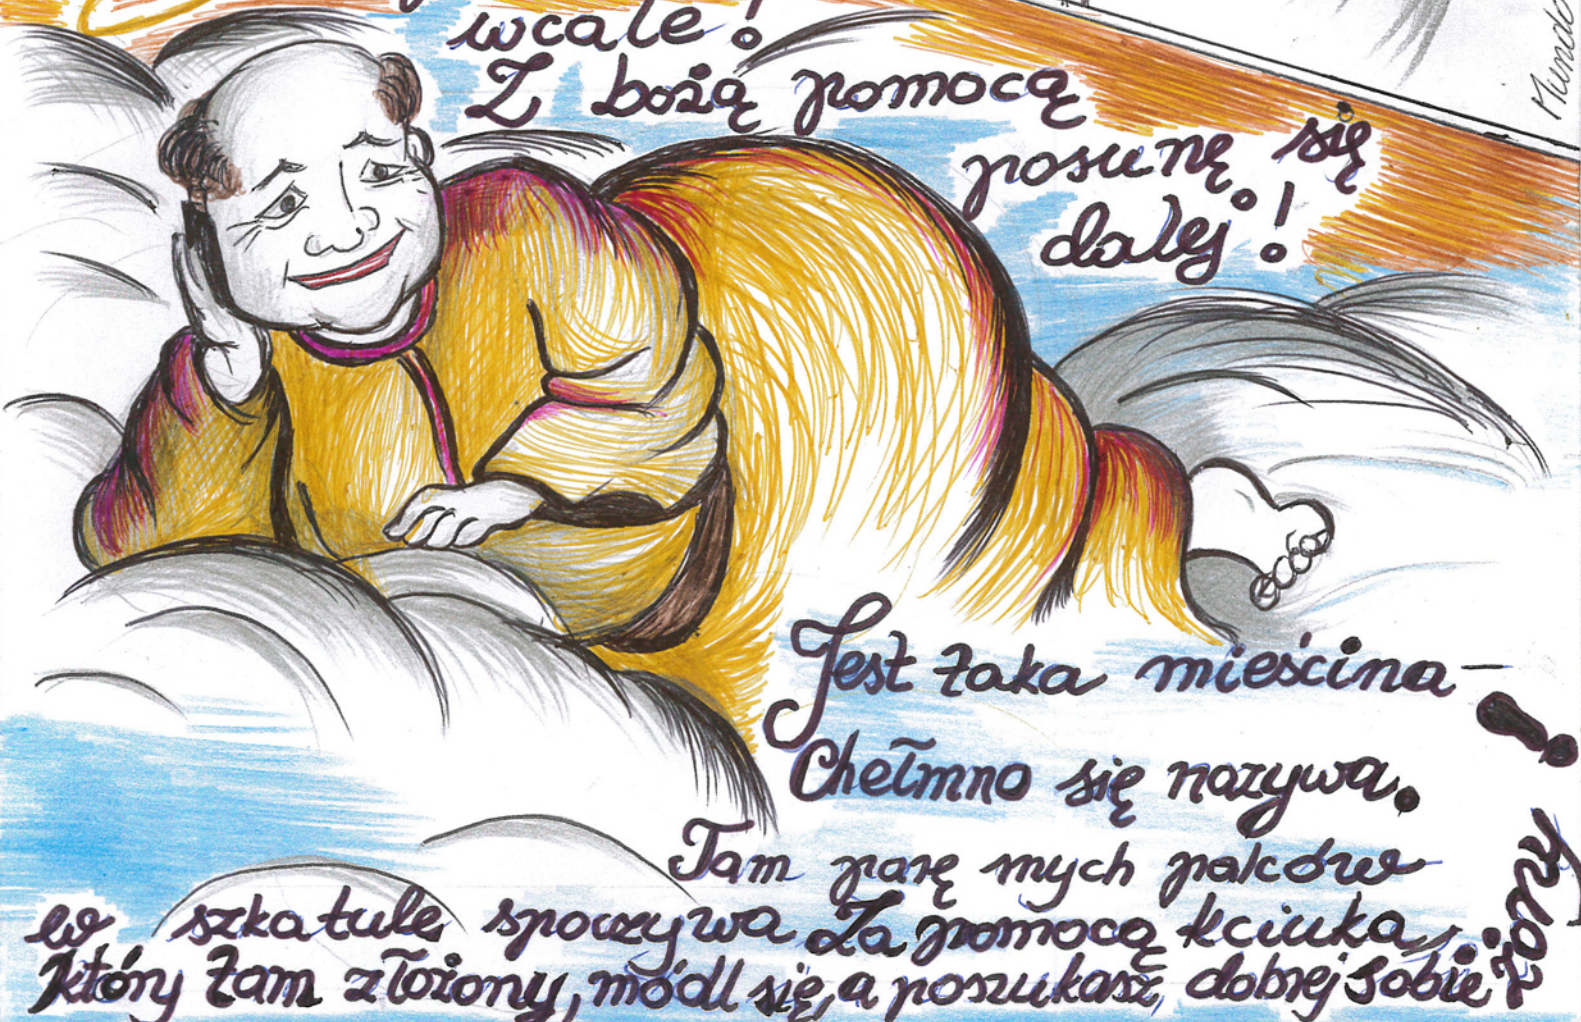 wcale!
Z bożą pomocą
posunę się
dalej!
Jest taka mieścina-
Chełmno się nazywa.
Tam parę mych palców
w szkatule spoczywa. Za pomocą kciuka,
który tam złożony, módl się, a poszukasz dobrej sobie żony!
Mundo